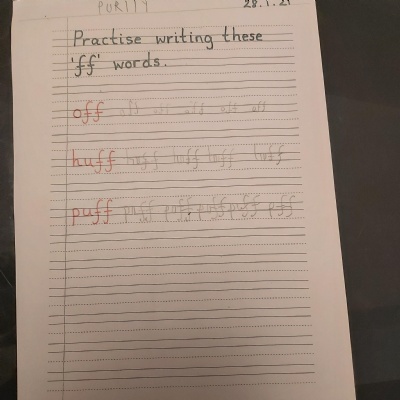 PURITY 28.1.21
Practise writing these
'ff' words.
off off off off off off
huff huff huff huff huff
puff puff puff puff puff puff